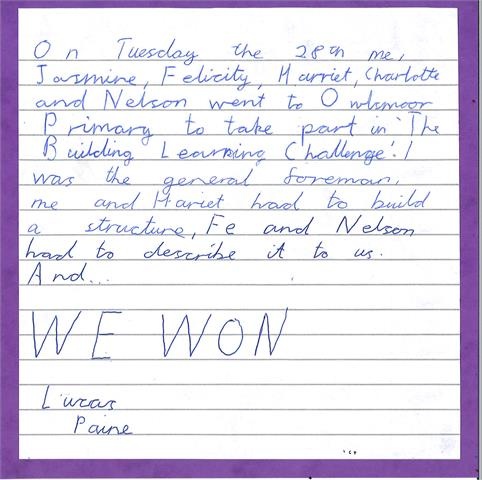 On Tuesday the 28th me,
Jasmine, Felicity, Harriet, Charlotte
and Nelson went to Owlsmoor
Primary to take part in 'The
Building Learning Challenge'. I
was the general foreman,
me and Harriet had to build
a structure, Fe and Nelson
had to describe it to us.
And...
WE WON
Lucas
Paine